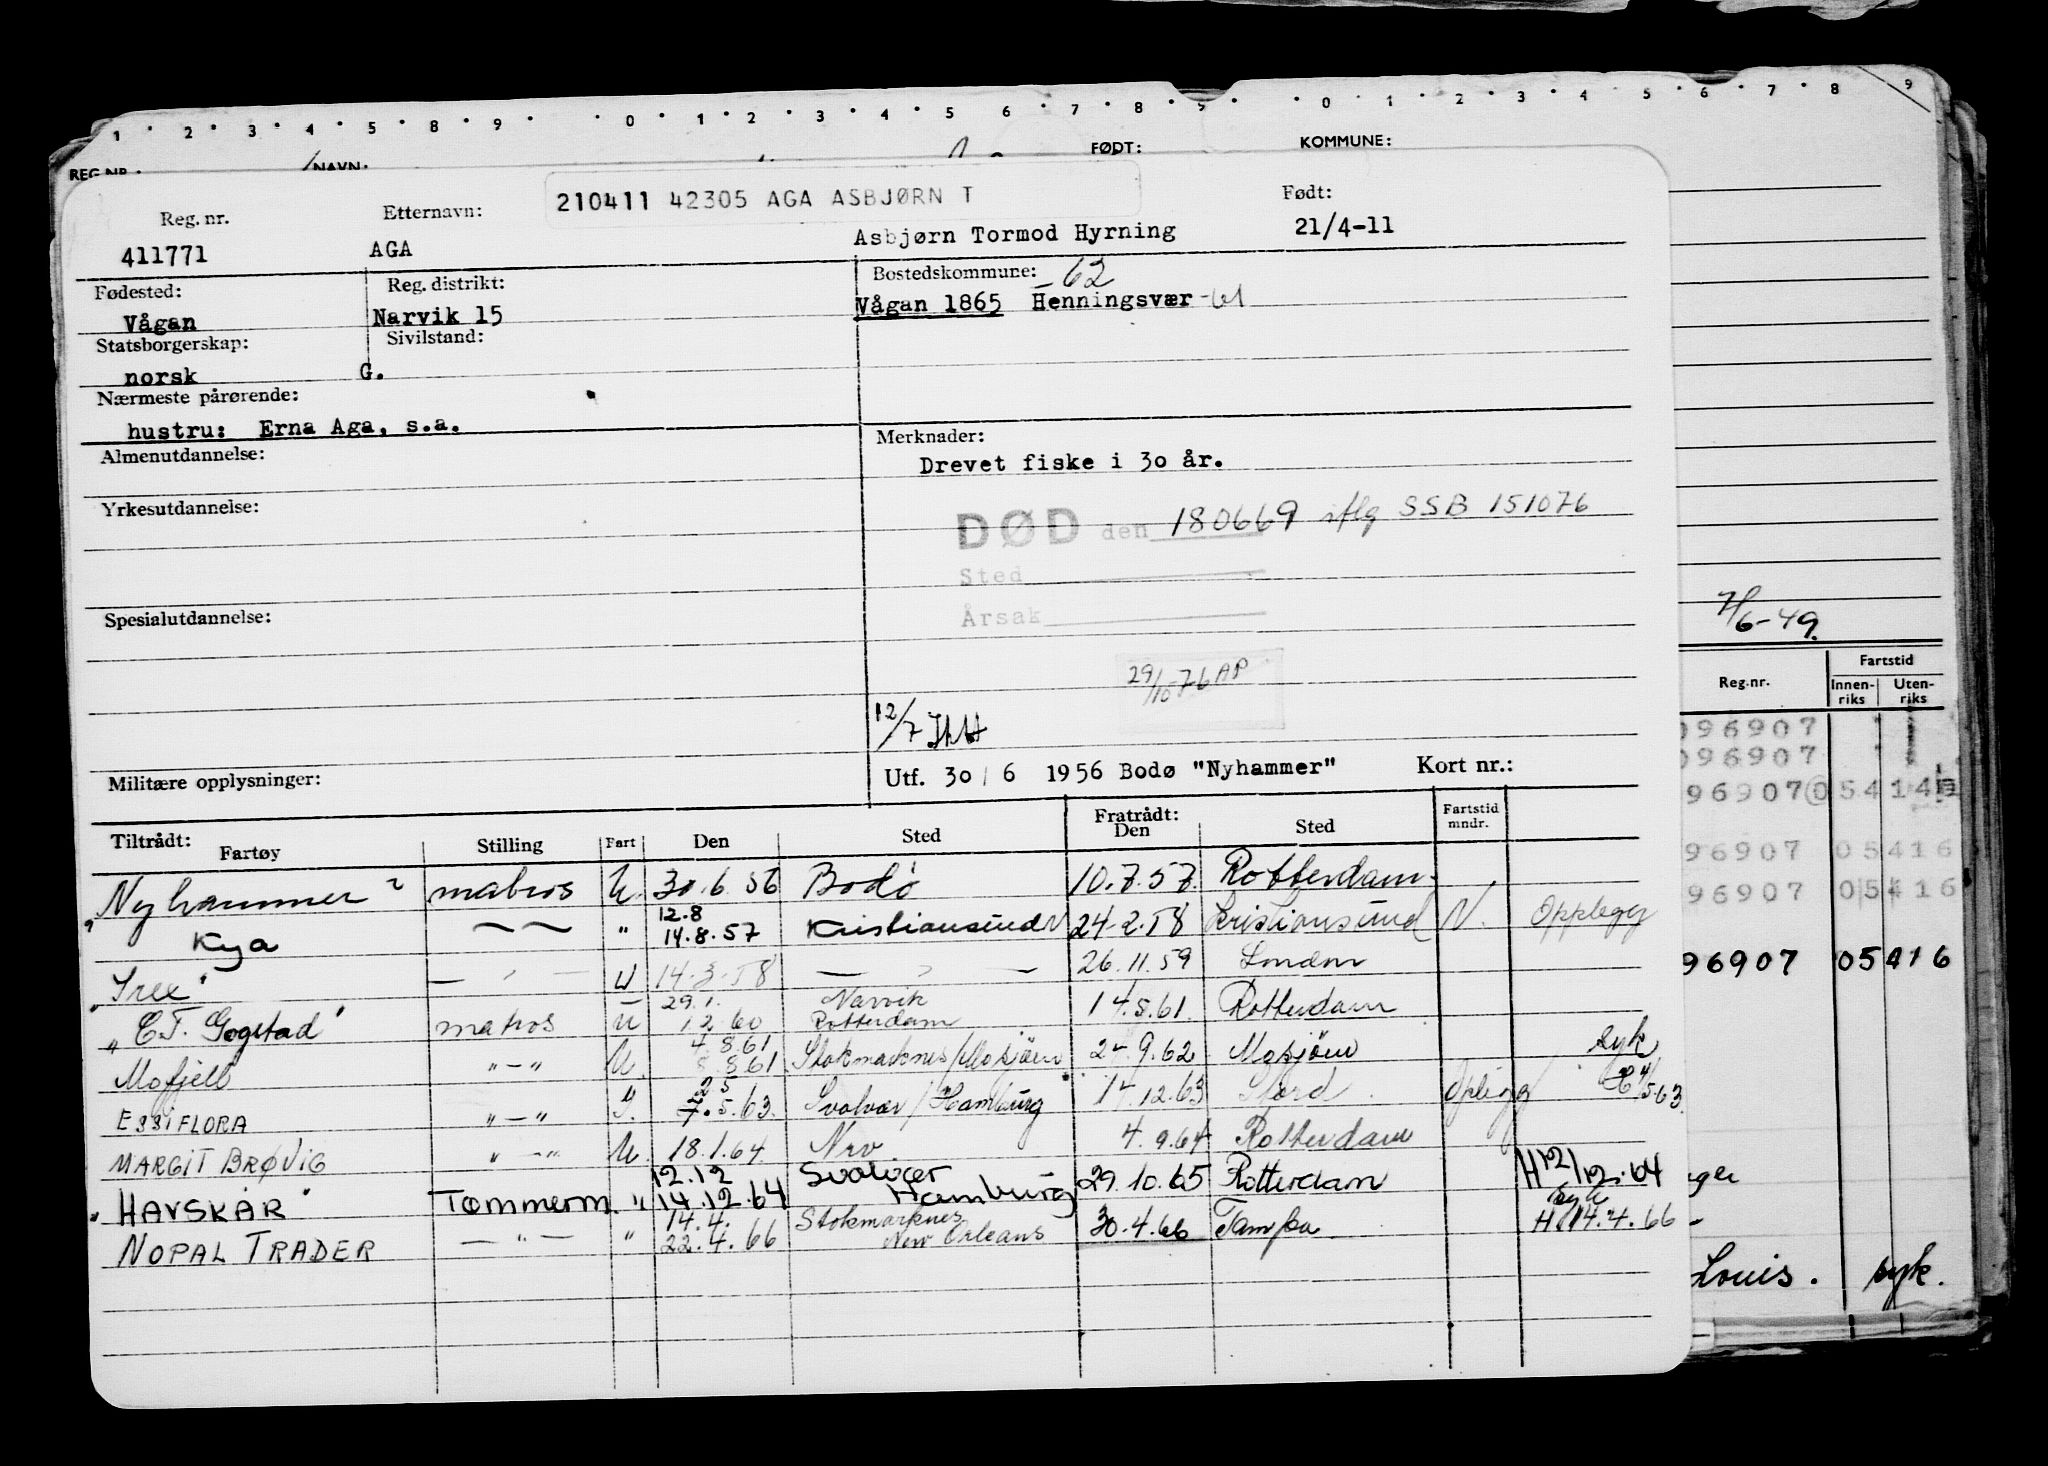 1 2 3 4 5 8 9 0 1 2 3 4 5 6 7 8 9 0 1 2 3 4 5 6 7 8 9
REG.NR. NAVN: FØDT: KOMMUNE:
210411 42305 AGA ASBJØRN T
Reg. nr. Etternavn: Født:
411771 AGA Asbjørn Tormod Hyrning 21/4-11
Fødested: Reg. distrikt: Bostedskommune: 62
Vågan Narvik 15 Vågan 1865 Henningsvær -61
Statsborgerskap: Sivilstand:
norsk G.
Nærmeste pårørende:
hustru: Erna Aga, s.a.
Almenutdannelse: Merknader:
Drevet fiske i 30 år.
Yrkesutdannelse:
DØD den 180669 iflg SSB 151076
Sted
Årsak
Spesialutdannelse:
29/10-76 AP
12/7
Militære opplysninger: Utf. 30/6 1956 Bodø "Nyhammer" Kort nr.:
Tiltrådt: Fartøy Stilling Fart Den Sted Fratrådt: Den Sted Fartstid mndr.
Nyhammer matros U. 30.6.56 Bodø 10.7.57. Rotterdam.
12.8
Kya -~- " 14.8.57 Kristiansund N 24-2.58 Kristiansund N. Opplegg
"Tree" - " - U 14.3.58 - " - 26.11.59 London
29.1. Narvik
"E.T. Gogstad" matros U 1.2.60 Rotterdam 14.5.61. Rotterdam
4.8.61
Mofjell "-" U. 8.8.61. Stokmarknes/Mosjöen 24.9.62 Mosjöen syk
25
ESSI FLORA "-" 7.5.63. Svolvær/Hamburg 17.12.63 Stord Oplegg 4/5 63
MARGIT BRØVIG "-" U. 18.1.64. Nrv. 4.9.64 Rotterdam
12.12 Svolvær
"HAVSKÅR" Tømmerm. " 14.12.64 Hamburg 29.10.65 Rotterdam H 12/12.64
14.4. Stokmarknes syk
NOPAL TRADER - " - " 22.4.66 New Orleans 30.4.66 Tampa H 14.4.66
7/6-49.
Reg.nr. Fartstid
Innen-riks Uten-riks
096907
096907
96907 0 5414
96907 05416
96907 05416
96907 05416
Louis. syk.